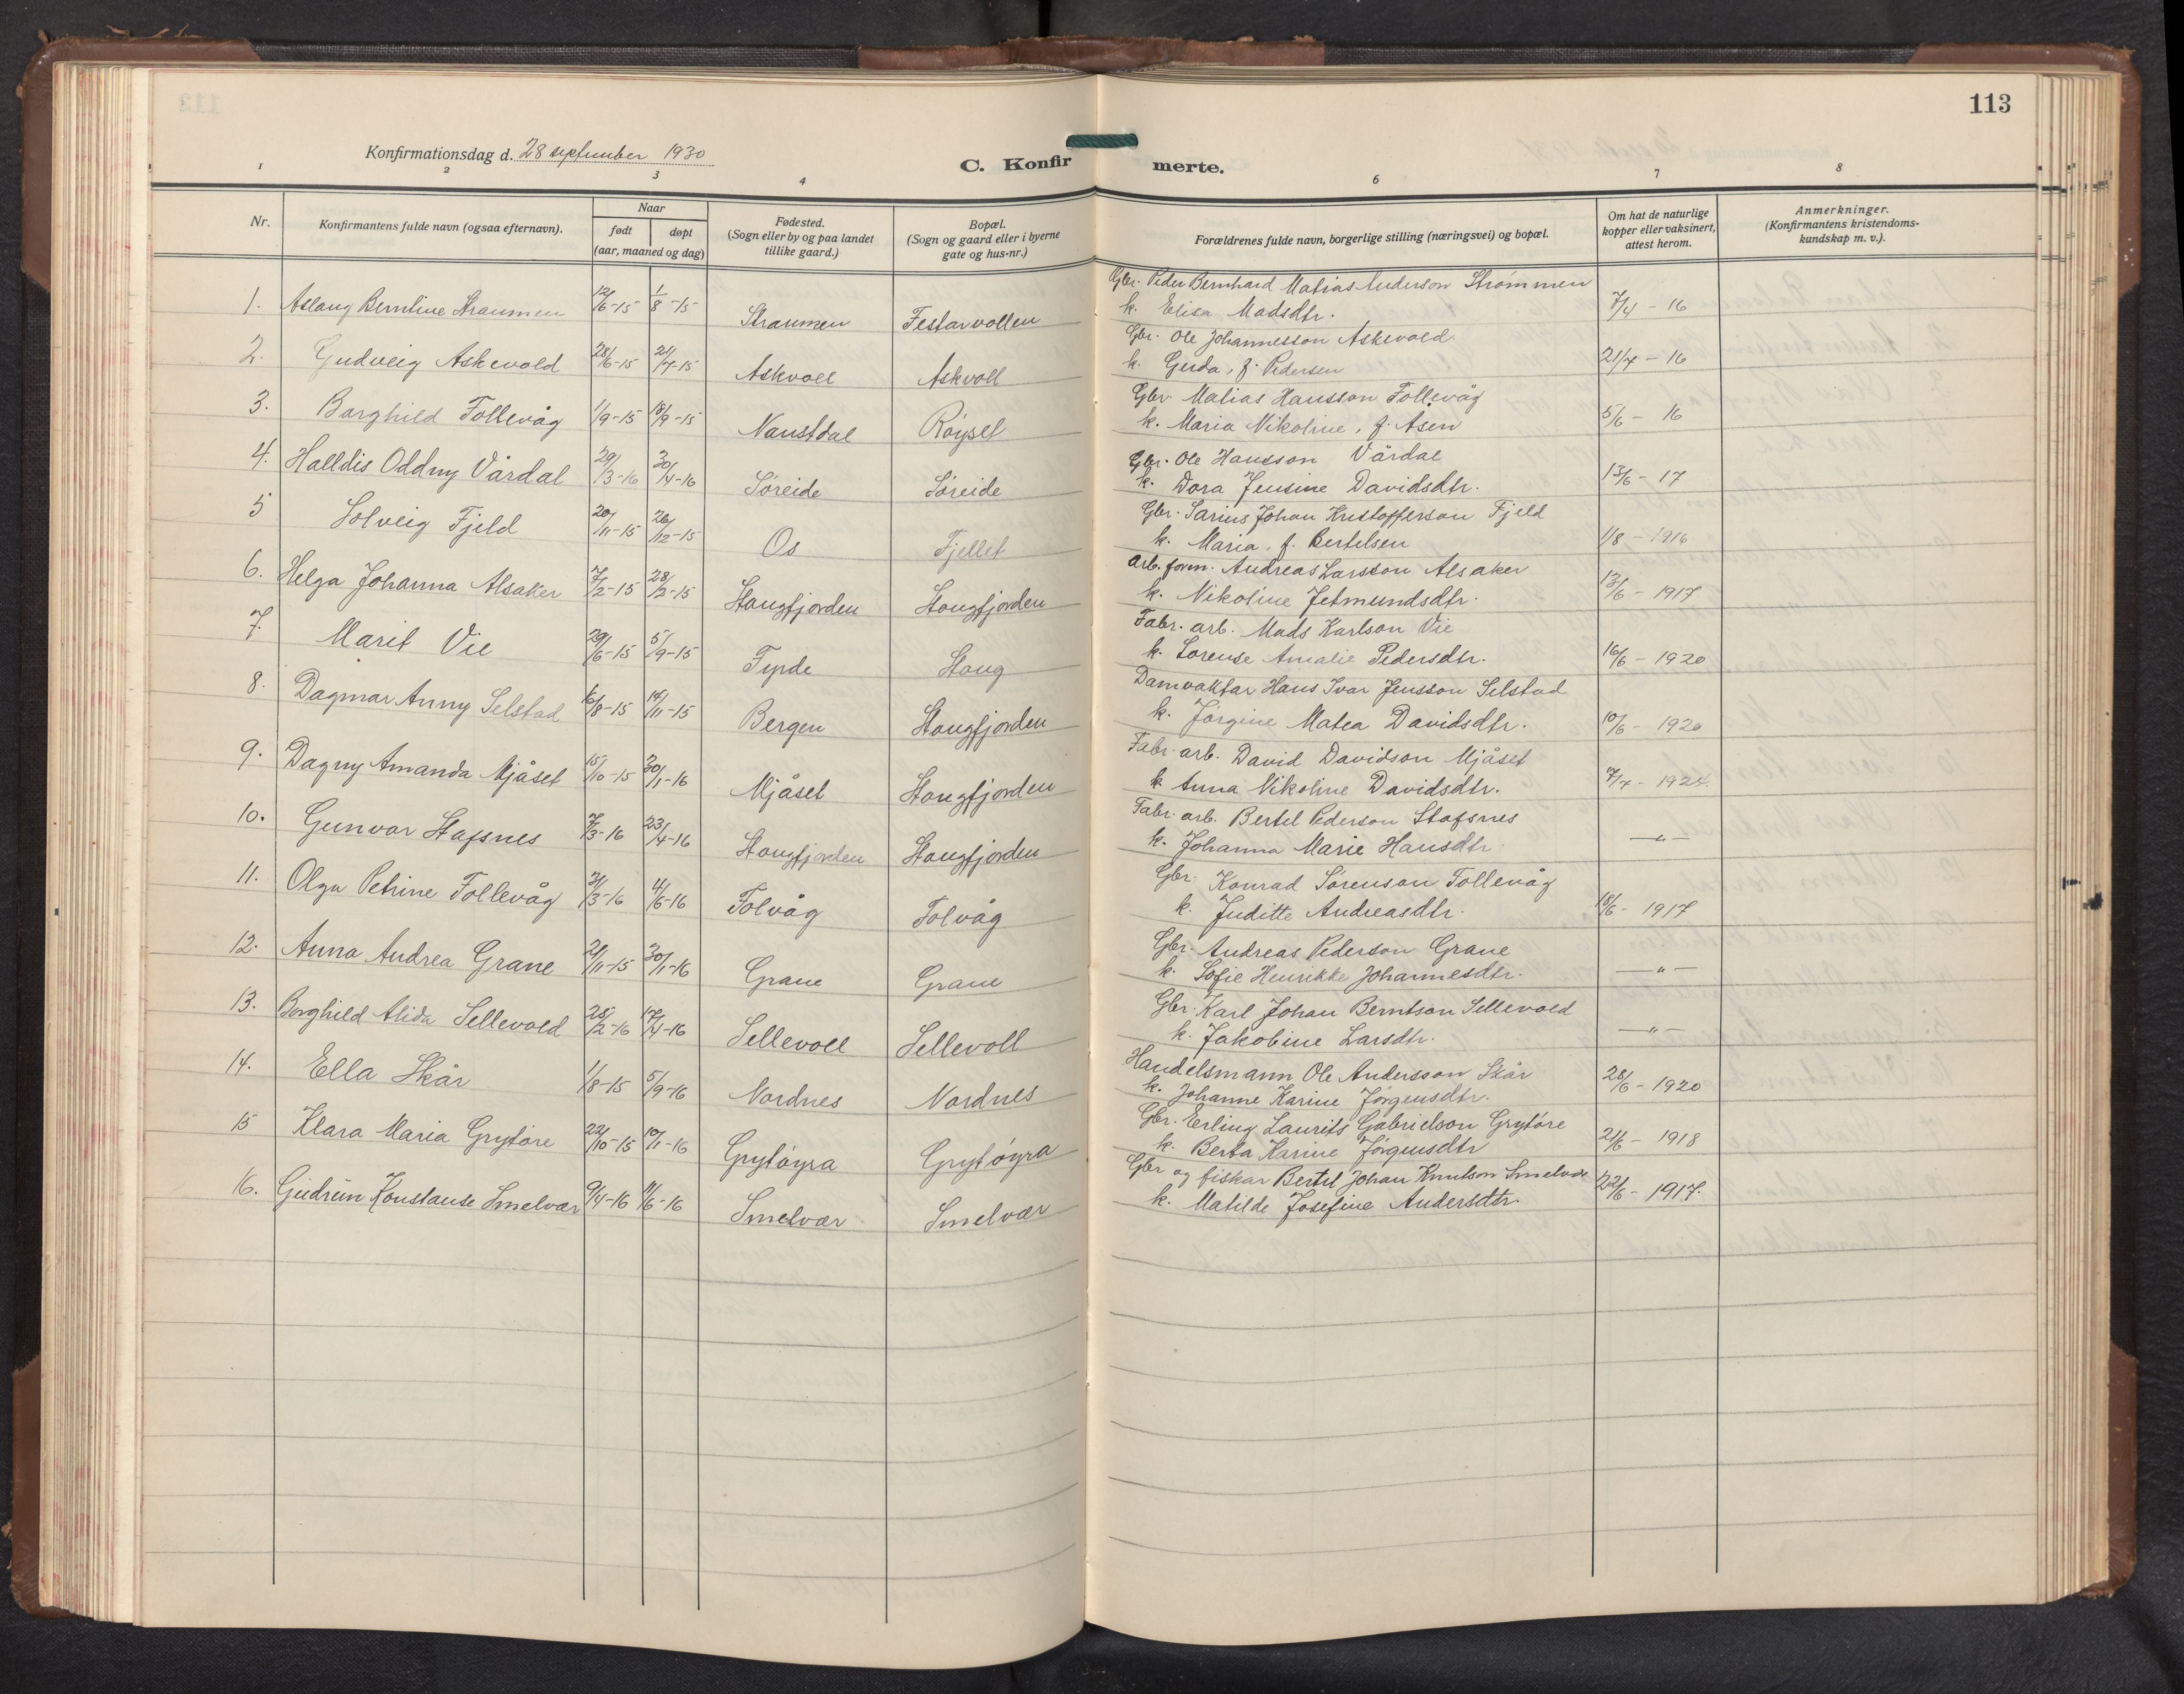 113
Konfirmationsdag d. 28 september 1930
C. Konfirmerte.
1 2 3 4 6 7 8
Nr. Konfirmantens fulde navn (ogsaa efternavn). Naar født døpt (aar, maaned og dag) Fødested. (Sogn eller by og paa landet tillike gaard.) Bopæl. (Sogn og gaard eller i byerne gate og hus-nr.) Forældrenes fulde navn, borgerlige stilling (næringsvei) og bopæl. Om hat de naturlige kopper eller vaksinert, attest herom. Anmerkninger. (Konfirmantens kristendoms-kundskap m. v.).
1. Aslaug Berntine Straumen 12/6-15 1/8-15 Straumen Festarvollen Gbr. Peder Bernhard Matias Anderson Strømmen
k. Elisa Madsdtr. 7/4-16
2. Gudveig Askevold 28/6-15 21/7-15 Askvoll Askvoll Gbr. Ole Johannesson Askevold
k. Gerda, f. Pedersen 21/7-16
3. Borghild Follevåg 1/9-15 18/9-15 Naustdal Røyset Gbr. Matias Hansson Follevåg
k. Maria Nikoline, f. Åsen 5/6-16
4. Halldis Oddny Vårdal 29/3-16 30/4-16 Søreide Søreide Gbr. Ole Hansson Vårdal
k. Dora Jensine Davidsdtr. 13/6-17
5 Solveig Fjeld 20/11-15 26/12-15 Os Fjellet Gbr. Sarius Johan Kristofferson Fjeld
k. Maria, f. Bertelsen 1/8-1916
6. Helga Johanna Alsaker 7/2-15 28/2-15 Stongfjorden Stongfjorden Arb. form. Andreas Larsson Alsaker
k. Nikoline Jetmundsdtr. 13/6-1917
7. Marit Vie 29/6-15 5/9-15 Fyrde Stong Fabr. arb. Mads Karlson Vie
k. Lorense Amalie Pedersdtr. 16/6-1920
8. Dagmar Anny Selstad /8-15 14/11-15 Bergen Stongfjorden Damvaktar Hans Ivar Jensson Selstad
k. Jørgine Matea Davidsdtr. 10/6-1920
9. Dagny Amanda Mjåset 15/10-15 30/1-16 Mjåset Stongfjorden Fabr. arb. David Davidson Mjåset
k. Anna Nikoline Davidsdtr. 7/7-1924.
10. Gunvor Stafsnes 7/3-16 23/4-16 Stongfjorden Stongfjorden Fabr. arb. Bertel Pederson Stafsnes
k. Johanna Marie Hansdtr. —"—
11. Olga Petrine Follevåg 31/3-16 4/6-16 Folvåg Folvåg Gbr. Konrad Sørenson Follevåg
k. Juditte Andreasdtr. 18/6-1917
12. Anna Andrea Grane 21/11-15 30/1-16 Grane Grane Gbr. Andreas Pederson Grane
k. Sofie Henrikke Johannesdtr. —"—
13. Borghild Alida Sellevold 25/2-16 17/4-16 Sellevoll Sellevoll Gbr. Karl Johan Berntson Sellevold
k. Jakobine Larsdtr. —"—
14. Ella Skår 1/8-15 5/9-16 Nordnes Nordnes Handelsmann Ole Andersson Skår
k. Johanne Karine Jørgensdtr. 28/6-1920
15 Klara Maria Grytøre 22/10-15 10/1-16 Grytøyra Grytøyra Gbr. Erling Laurits Gabrielson Grytøre
k. Berta Karine Jørgensdtr 21/6-1918
16. Gudrun Konstanse Smelvær 9/4-16 11/6-16 Smelvær Smelvær Gbr og fiskar Bertel Johan Knutson Smelvær
k. Matilde Josefine Andersdtr. 22/6-1917.